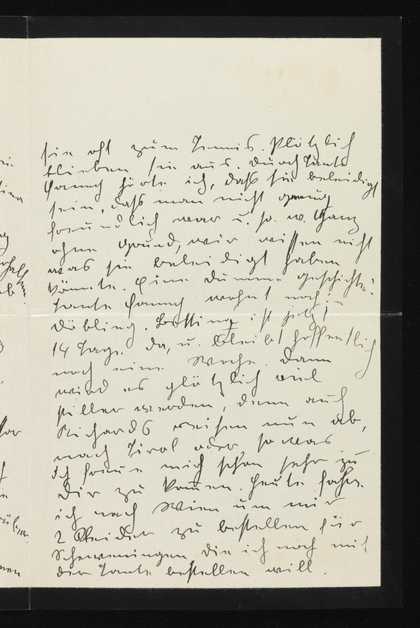 sie oft zum Tennis. Plötzlich
blieben sie aus. Durch Tante
Fanny hörte ich, daß sie beleidigt
seien, daß man nicht genug
freundlich war u. s. w. Ganz
ohne Grund, wir wissen nicht
was sie beleidigt haben
könnte. Eine dumme Geschichte!
Tante Fanny wohnt noch in
Döbling. ist jetzt
14 Tage da, u. bleibt hoffentlich
noch eine Woche. Dann
wird es plötzlich viel
stiller werden, denn auch
Richards reisen nun ab,
nach Tirol oder so was
Ich freue mich schon sehr zu
Dir zu kommen. Heute fahre
ich nach Wien um mir
2 Kleider zu bestellen für
Scheveningen, die ich noch mit
der Tante bestellen will.